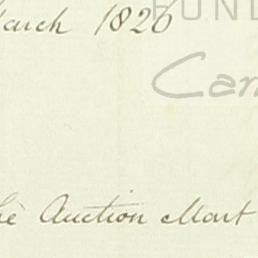 March 1826
FUND
Can
The Auction Mart